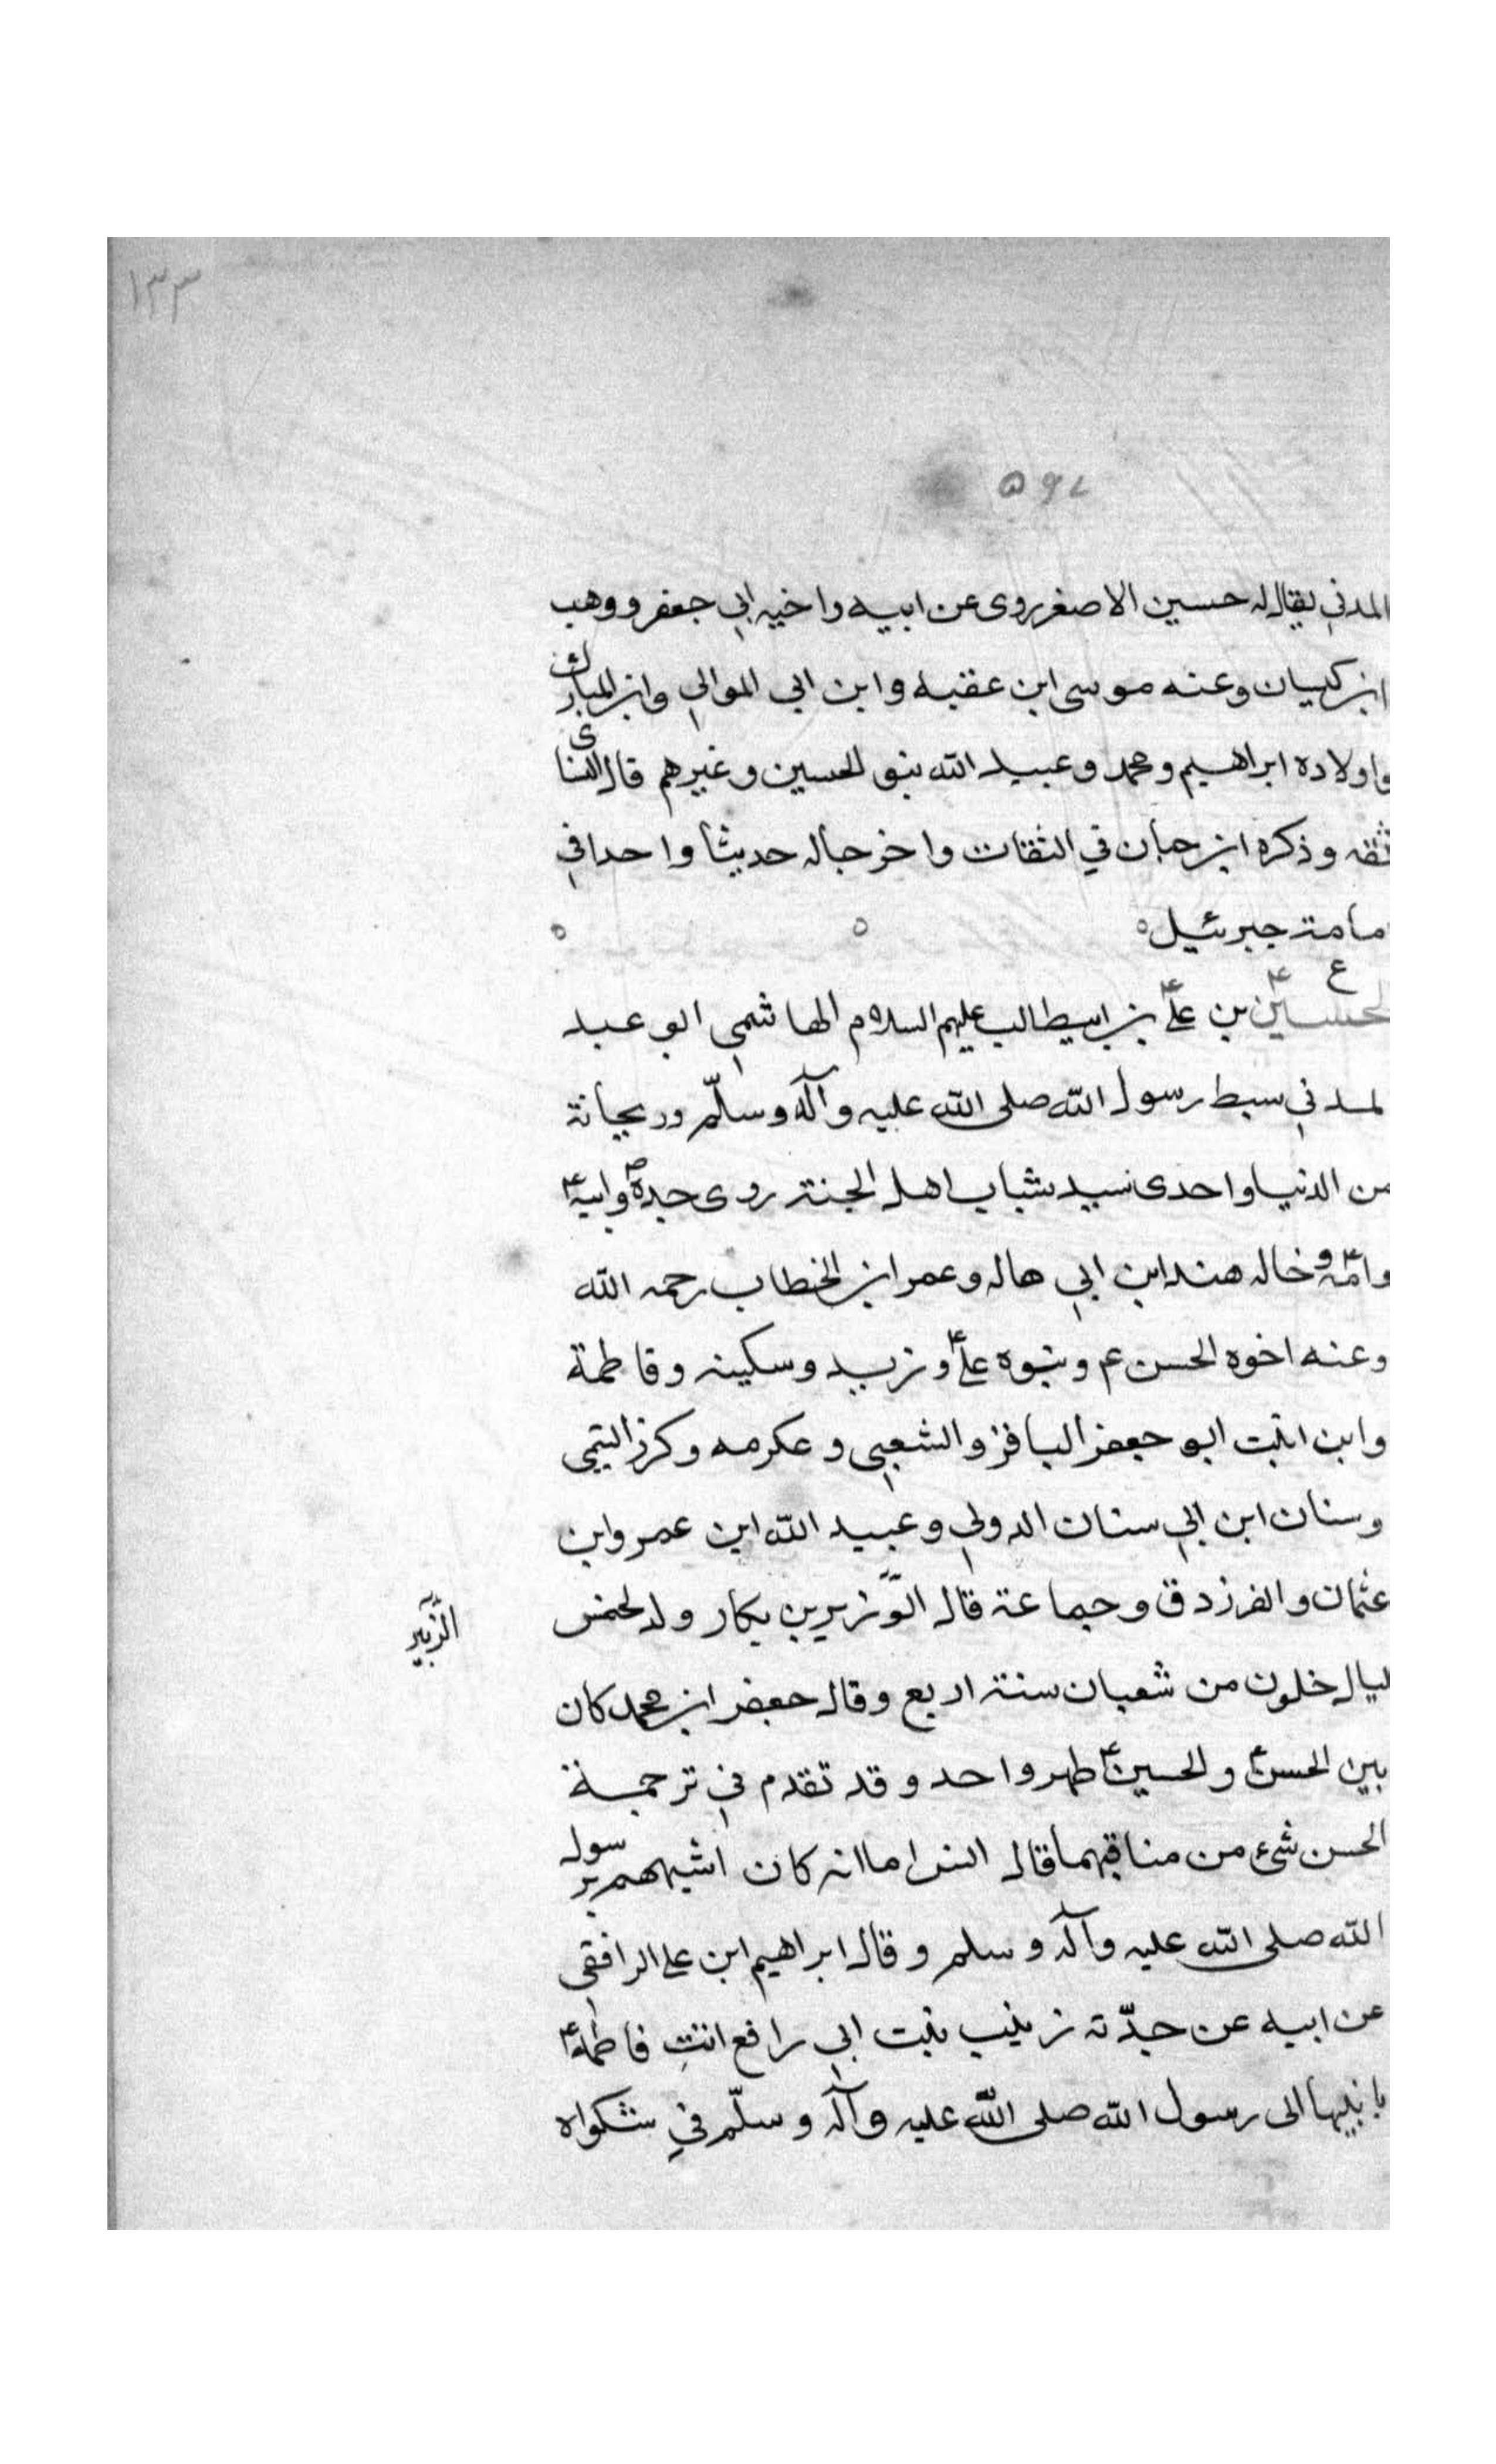 ١٣٣
٥٩٧
المدني يقال له حسين الاصغر روى عن ابيه واخيه ابي جعفر ووهب
ابن كيسان وعنه موسى ابن عقبه وابن ابي الموالي وابن المبارك
واولاده ابراهيم ومحمد وعبيد الله بنو الحسين وغيرهم قال النسائى
ثقه وذكره ابن حبان في الثقات واخرجا له حديثا واحدا في
مامة جبرئيل
ع
لحسين بن علي بن ابيطالب عليهم السلام الهاشمي ابو عبد
لمدني سبط رسول الله صلى الله عليه وآله وسلّم وريحانة
من الدنيا واحدى سيد شباب اهل الجنة روى جده ص وابيه ع
وامّه ع وخاله هند ابن ابي هاله وعمر ابن الخطاب رحمه الله
وعنه اخوه الحسن ع وبنوه علي ع وزيد وسكينه وفاطمة
وابن ابنت ابو جعفر الباقر والشعبي وعكرمه وكرز التيمي
وسنان ابن ابي سنان الدولي وعبيد الله ابن عمرو ابن
عثمان والفرزدق وجماعة قال الوزير بن بكار ولد لخمس
الزّبير
ليال خلون من شعبان سنة اربع وقال جعفر ابن محمد كان
بين الحسن ع والحسين ع طهر واحد وقد تقدم في ترجمة
الحسن شيء من مناقبهما قال انس اما انه كان اشبههم برسول
الله صلى الله عليه وآله وسلم وقال ابراهيم ابن علي الرافقي
عن ابيه عن جدّته زينب بنت ابي رافع اتت فاطمة ع
بابنيها الى رسول الله صلى الله عليه وآله وسلّم في شكواه